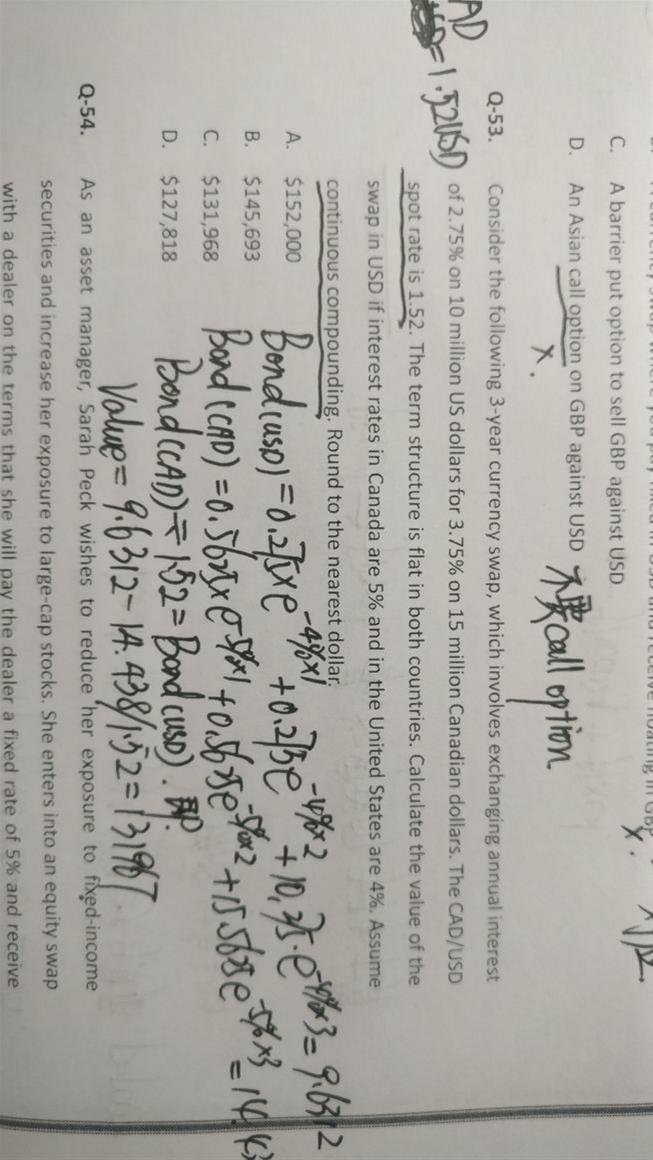 C. A barrier put option to sell GBP against USD
D. An Asian call option on GBP against USD
X.
call option
Q-53. Consider the following 3-year currency swap, which involves exchanging annual interest
of 2.75% on 10 million US dollars for 3.75% on 15 million Canadian dollars. The CAD/USD
spot rate is 1.52. The term structure is flat in both countries. Calculate the value of the
swap in USD if interest rates in Canada are 5% and in the United States are 4%. Assume
continuous compounding. Round to the nearest dollar.
AD
= 1.52USD
A. $152,000
B. $145,693
C. $131,968
D. $127,818
Bond(USD) = 0.275×e^-4%×1 + 0.275e^-4%×2 + 10.275·e^-4%×3 = 9.6312
Bond(CAD) = 0.5625×e^-5%×1 + 0.5625e^-5%×2 + 15.5625e^-5%×3 = 14.43
Bond(CAD) ÷ 1.52 = Bond(USD).
Value = 9.6312 - 14.438/1.52 = 131967
Q-54. As an asset manager, Sarah Peck wishes to reduce her exposure to fixed-income
securities and increase her exposure to large-cap stocks. She enters into an equity swap
with a dealer on the terms that she will pay the dealer a fixed rate of 5% and receive